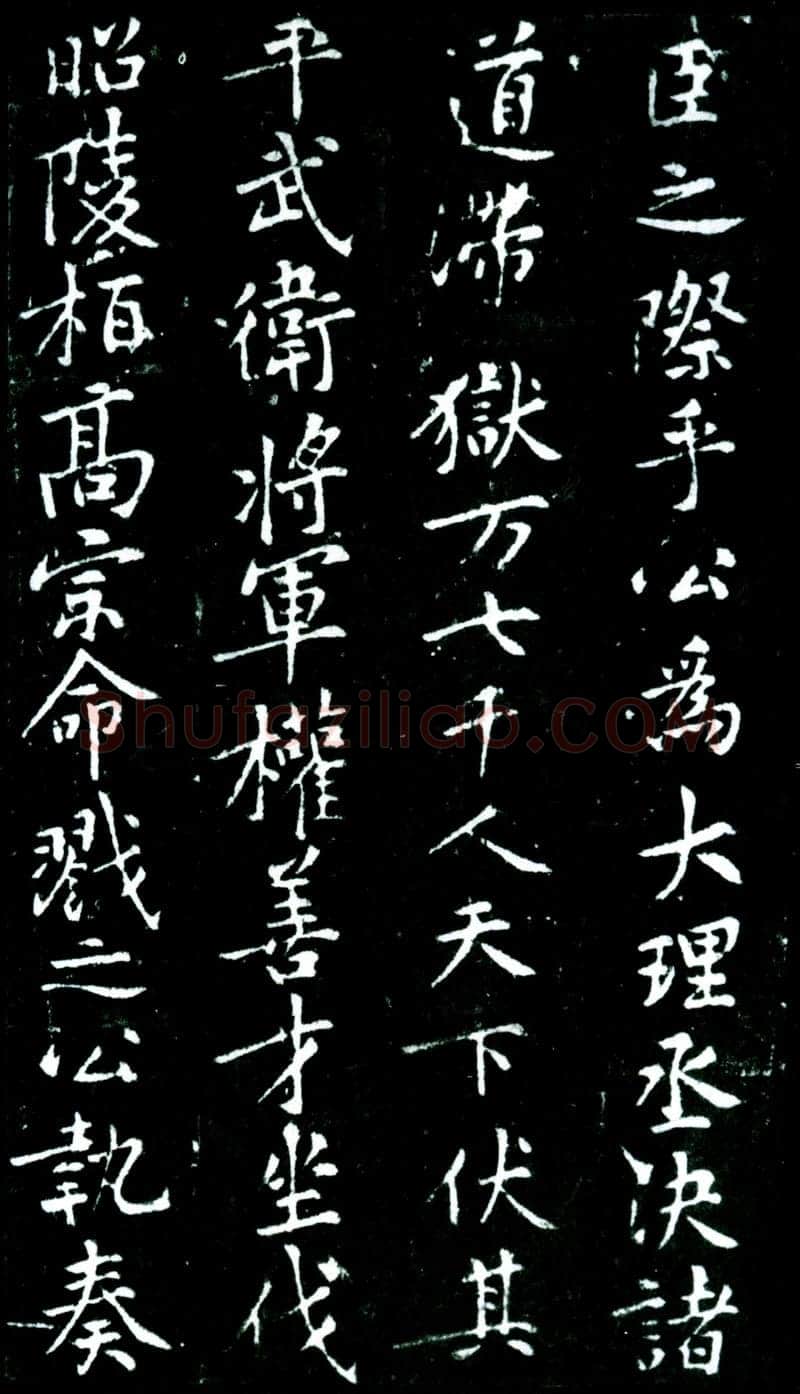 臣之際乎公爲大理丞決諸
道滯獄万七千人天下伏其
平武衛将軍權善才坐伐
昭陵栢髙宗命戮之公執奏
Shufaziliao.COM